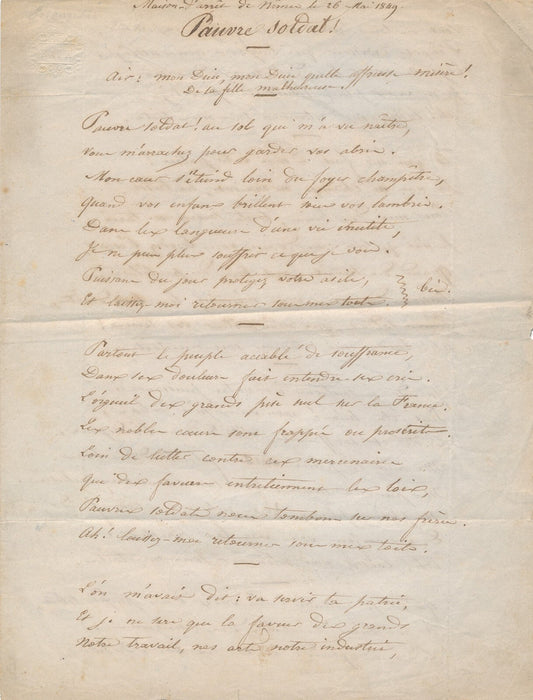 Maison d'arrêt de le 26 Mai 1849.
Pauvre soldat!
Air: mon Dieu, mon Dieu quelle affreuse misère!
De la fille malheureuse.
Pauvre soldat! au sol qui m'a vu naître,
Vous m'arrachez pour garder vos abris.
Mon cœur s'éteind loin du foyer champêtre,
Quand vos enfans brillent sous vos lambris.
Dans les langueurs d'une vie inutile,
Je ne puis plus souffrir ce que je vois.
Puissans du jour protégez votre asile,
Et laissez-moi retourner sous mes toits. bis.
Partout le peuple accablé de souffrance,
Dans ses douleurs fait entendre ses cris.
L'orgueil des grands pèse sur la France.
Les nobles cœurs sont frappés ou proscrits.
Loin de lutter contre ces mercenaires
que des faveurs entretiennent les lois,
Pauvres soldats nous tombons sur nos frères.
Ah! laissez-moi retourner sous mes toits.
L'on m'avais dit: va servir ta patrie,
Et je ne sers que la faveur des grands
Notre travail, nos arts notre industrie,